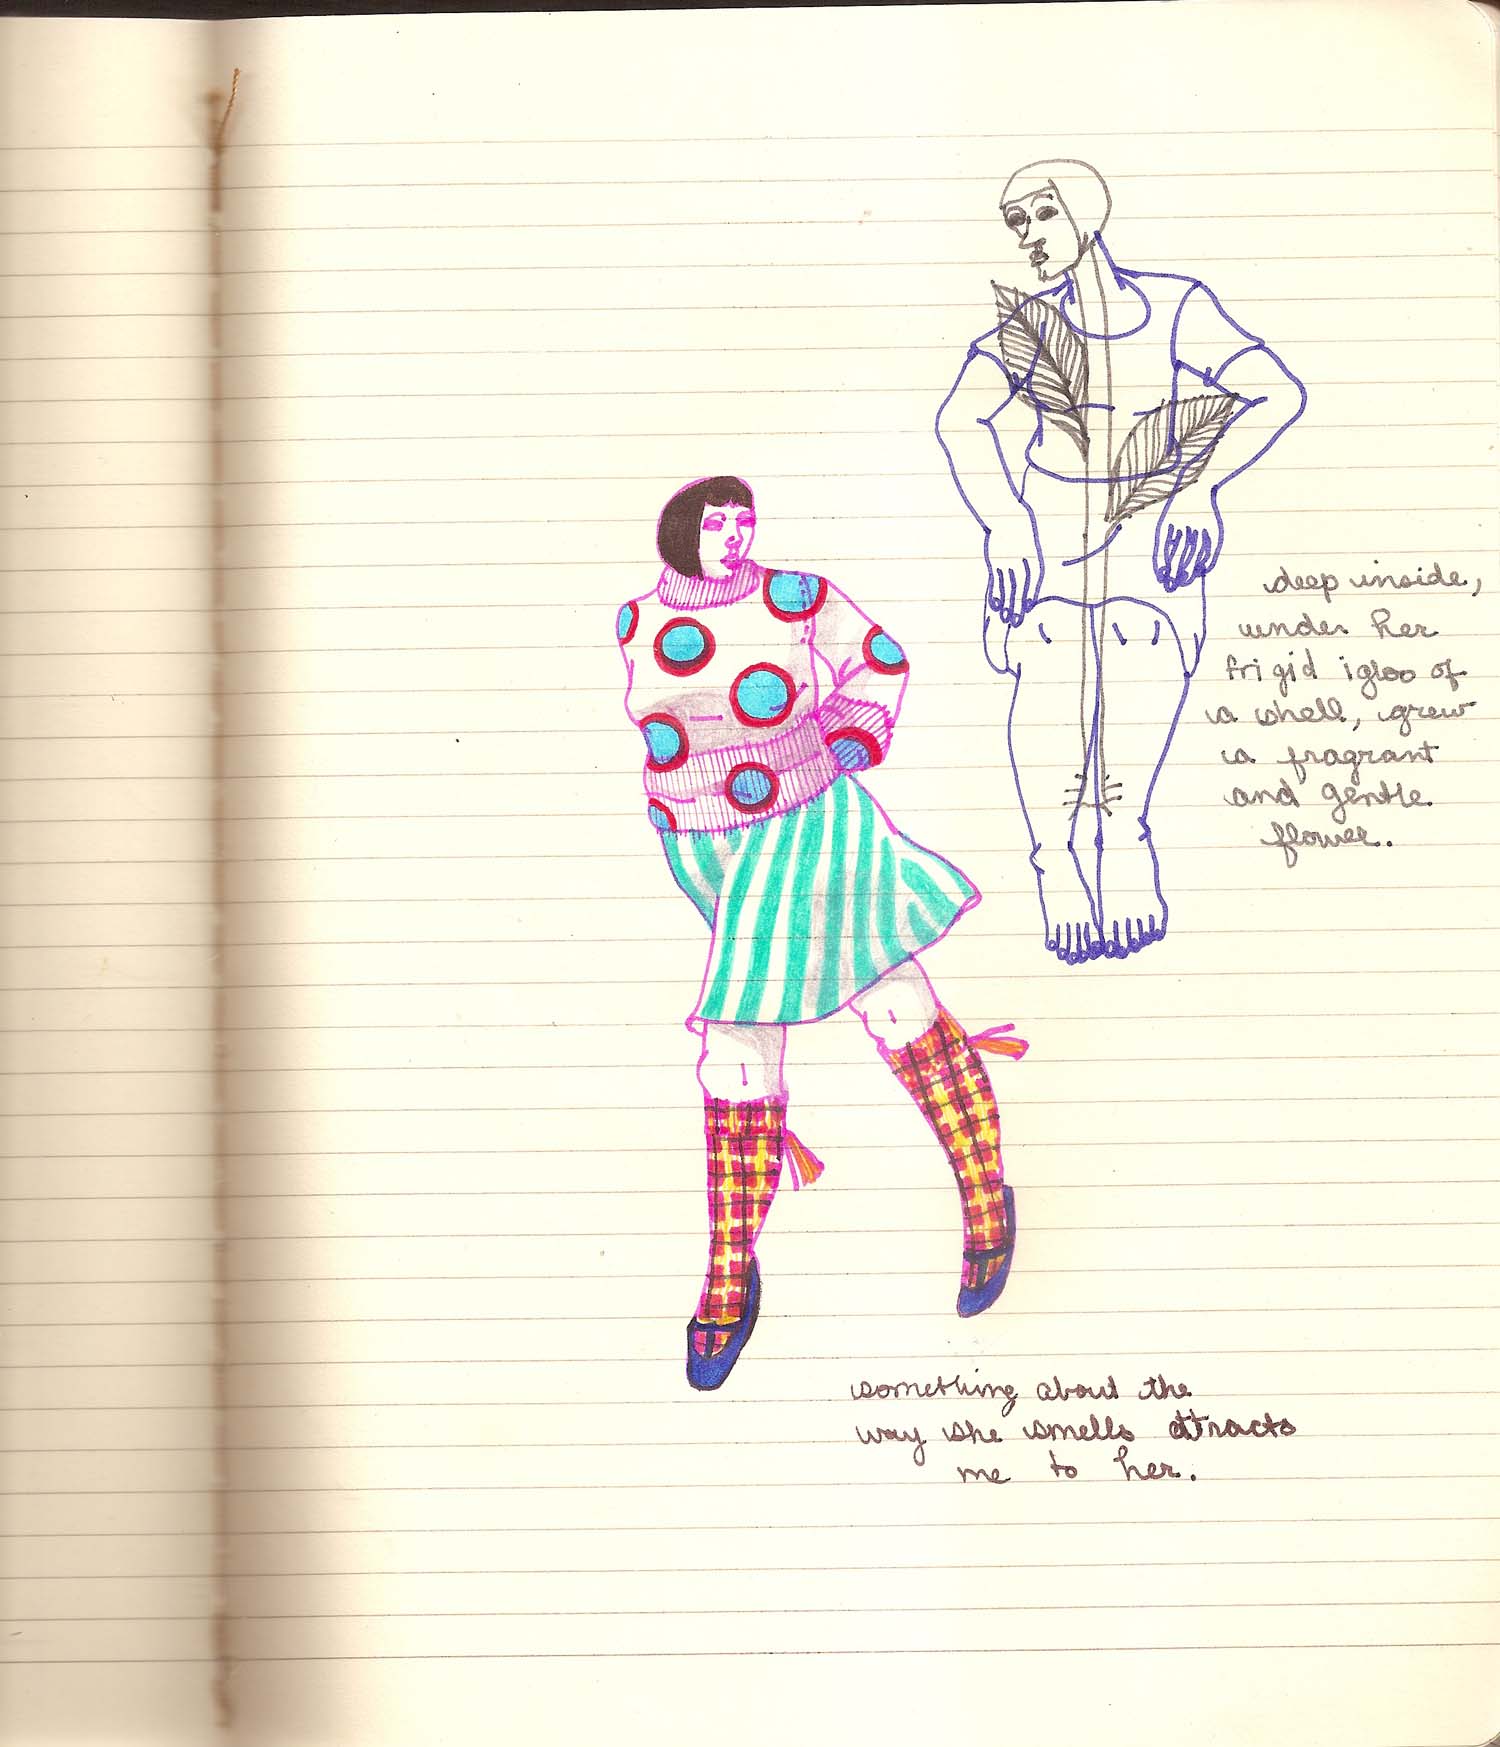 deep inside,
under her
frigid igloo of
a shell, grew
a fragrant
and gentle
flower.
something about the
way she smells attracts
me to her.